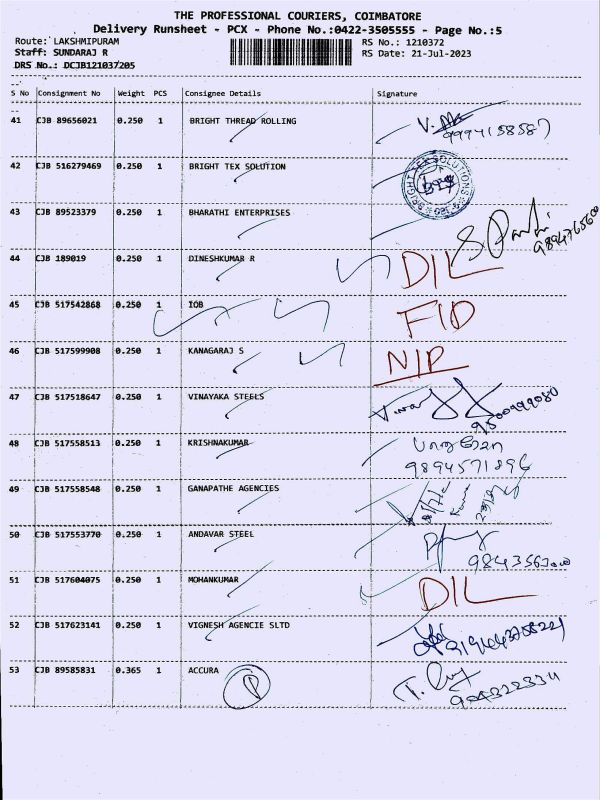 THE PROFESSIONAL COURIERS, COIMBATORE
Delivery Runsheet - PCX - Phone No.:0422-3505555 - Page No.:5
Route: LAKSHMIPURAM RS No.: 1210372
Staff: SUNDARAJ R RS Date: 21-Jul-2023
DRS No.: DCJB121037205
S No Consignment No Weight PCS Consignee Details Signature
41 CJB 89656021 0.250 1 BRIGHT THREAD ROLLING
9994158587
42 CJB 516279469 0.250 1 BRIGHT TEX SOLUTION
BRIGHT TEX SOLUTIONS
43 CJB 89523379 0.250 1 BHARATHI ENTERPRISES
9894765600
44 CJB 189019 0.250 1 DINESHKUMAR R DIL
45 CJB 517542868 0.250 1 IOB FID
46 CJB 517599908 0.250 1 KANAGARAJ S NIP
47 CJB 517518647 0.250 1 VINAYAKA STEELS
9500999080
48 CJB 517558513 0.250 1 KRISHNAKUMAR
9894571896
49 CJB 517558548 0.250 1 GANAPATHE AGENCIES
50 CJB 517553770 0.250 1 ANDAVAR STEEL
51 CJB 517604075 0.250 1 MOHANKUMAR DIL
52 CJB 517623141 0.250 1 VIGNESH AGENCIE SLTD
53 CJB 89585831 0.365 1 ACCURA
P